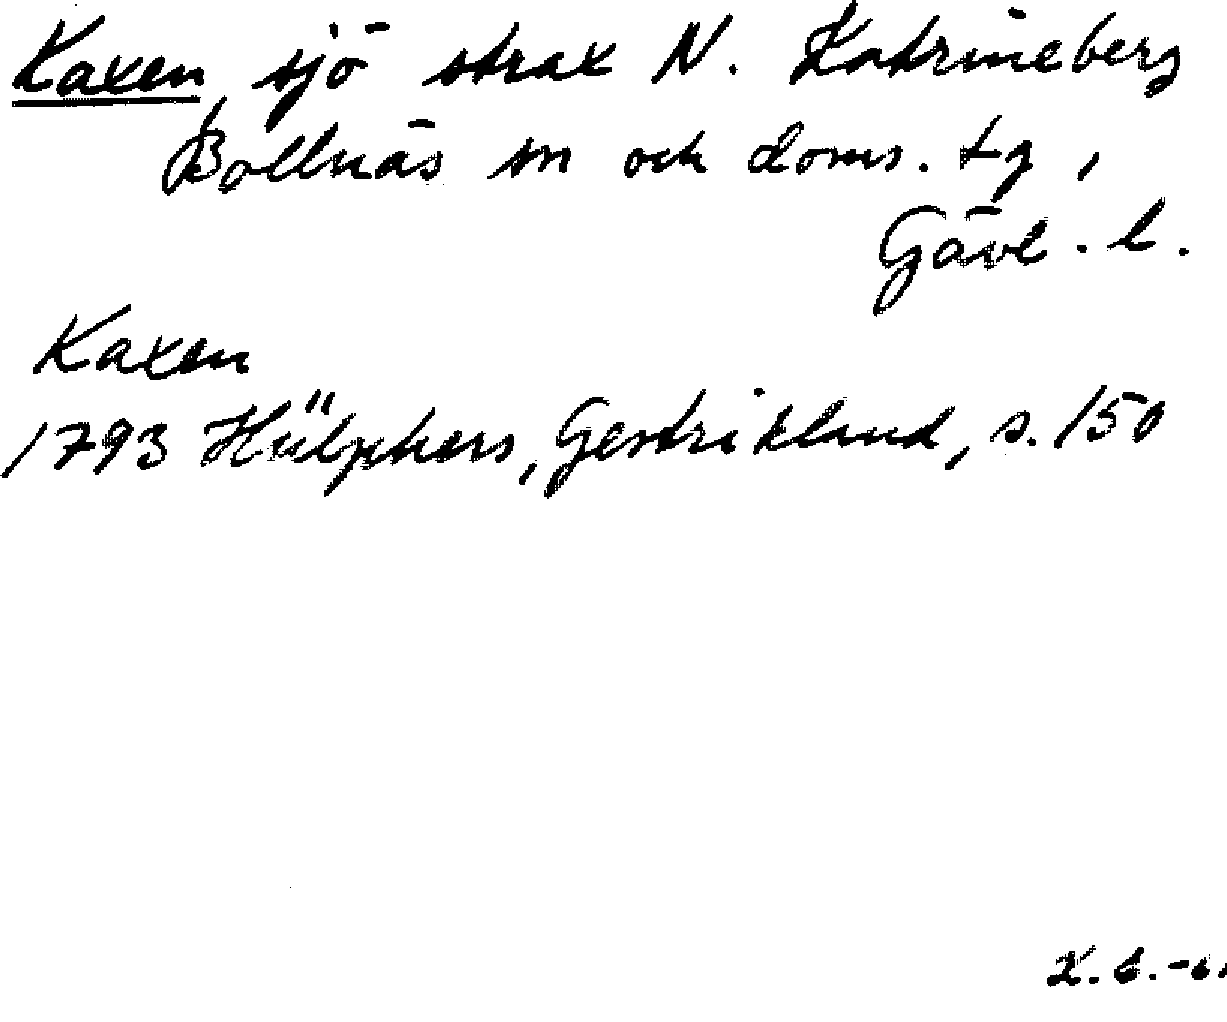 Kaxen sjö strax N. Katrineberg
Bollnäs sn och doms. tg,
Gävl. l.
Kaxen
1793 Hülphers, Gestrikland, s. 150